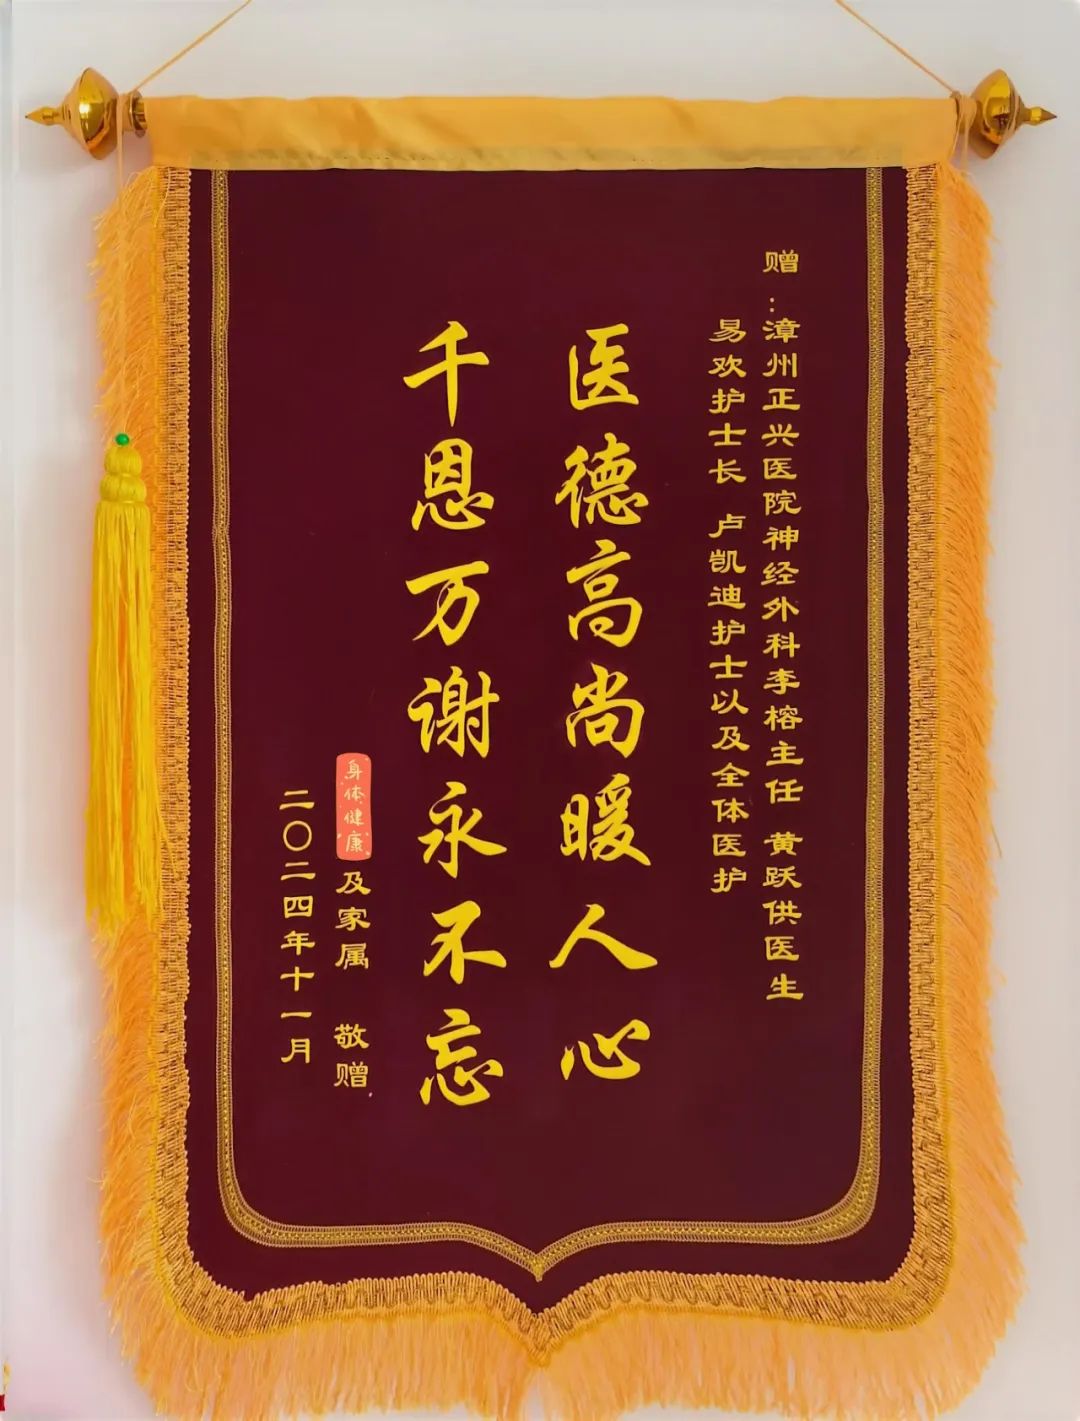 赠：漳州正兴医院神经外科李榕主任 黄跃供医生
易欢护士长 卢凯迪护士以及全体医护
医德高尚暖人心
千恩万谢永不忘
身体健康及家属 敬赠
二〇二四年十一月